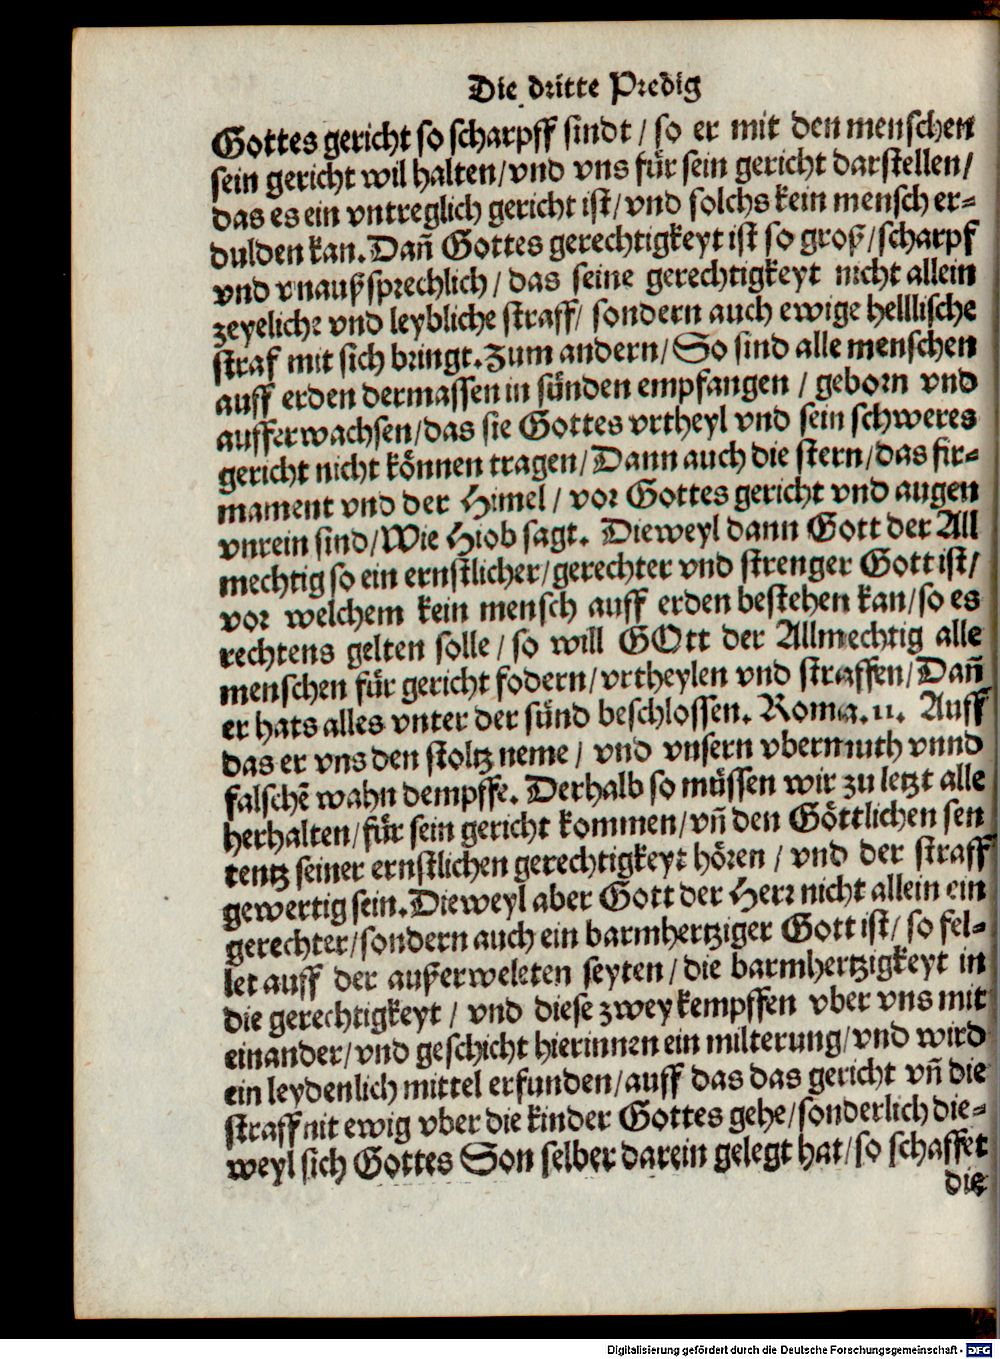 Die dritte Predig
Gottes gericht so scharpff sindt / so er mit den menschen
sein gericht wil halten/vnd vns für sein gericht darstellen/
das es ein vntreglich gericht ist/vnd solchs kein mensch er-
dulden kan. Dañ Gottes gerechtigkeyt ist so groß/scharpf
vnd vnaußsprechlich / das seine gerechtigkeyt nicht allein
zeyeliche vnd leybliche straff/ sondern auch ewige helllische
straf mit sich bringt. Zum andern/ So sind alle menschen
auff erden dermassen in sünden empfangen / geborn vnd
aufferwachsen/das sie Gottes vrtheyl vnd sein schweres
gericht nicht können tragen/Dann auch die stern/das fir-
mament vnd der Himel / vor Gottes gericht vnd augen
vnrein sind/Wie Hiob sagt. Dieweyl dann Gott der All
mechtig so ein ernstlicher/gerechter vnd strenger Gott ist/
vor welchem kein mensch auff erden bestehen kan/so es
rechtens gelten solle / so will GOtt der Allmechtig alle
menschen für gericht fodern/vrtheylen vnd straffen/Dañ
er hats alles vnter der sünd beschlossen. Roma. 11. Auff
das er vns den stoltz neme / vnd vnsern vbermuth vnnd
falschẽ wahn dempffe. Derhalb so müssen wir zu letzt alle
herhalten/für sein gericht kommen/vñ den Göttlichen sen
tentz seiner ernstlichen gerechtigkeyt hören / vnd der straff
gewertig sein. Dieweyl aber Gott der Herr nicht allein ein
gerechter/sondern auch ein barmhertziger Gott ist/ so fel-
let auff der außerweleten seyten / die barmhertzigkeyt in
die gerechtigkeyt / vnd diese zwey kempffen vber vns mit
einander/vnd geschicht hierinnen ein milterung/vnd wird
ein leydenlich mittel erfunden/auff das das gericht vñ die
straff nit ewig vber die kinder Gottes gehe/sonderlich die-
weyl sich Gottes Son selber darein gelegt hat/so schaffet
die
Digitalisierung gefördert durch die Deutsche Forschungsgemeinschaft - DFG